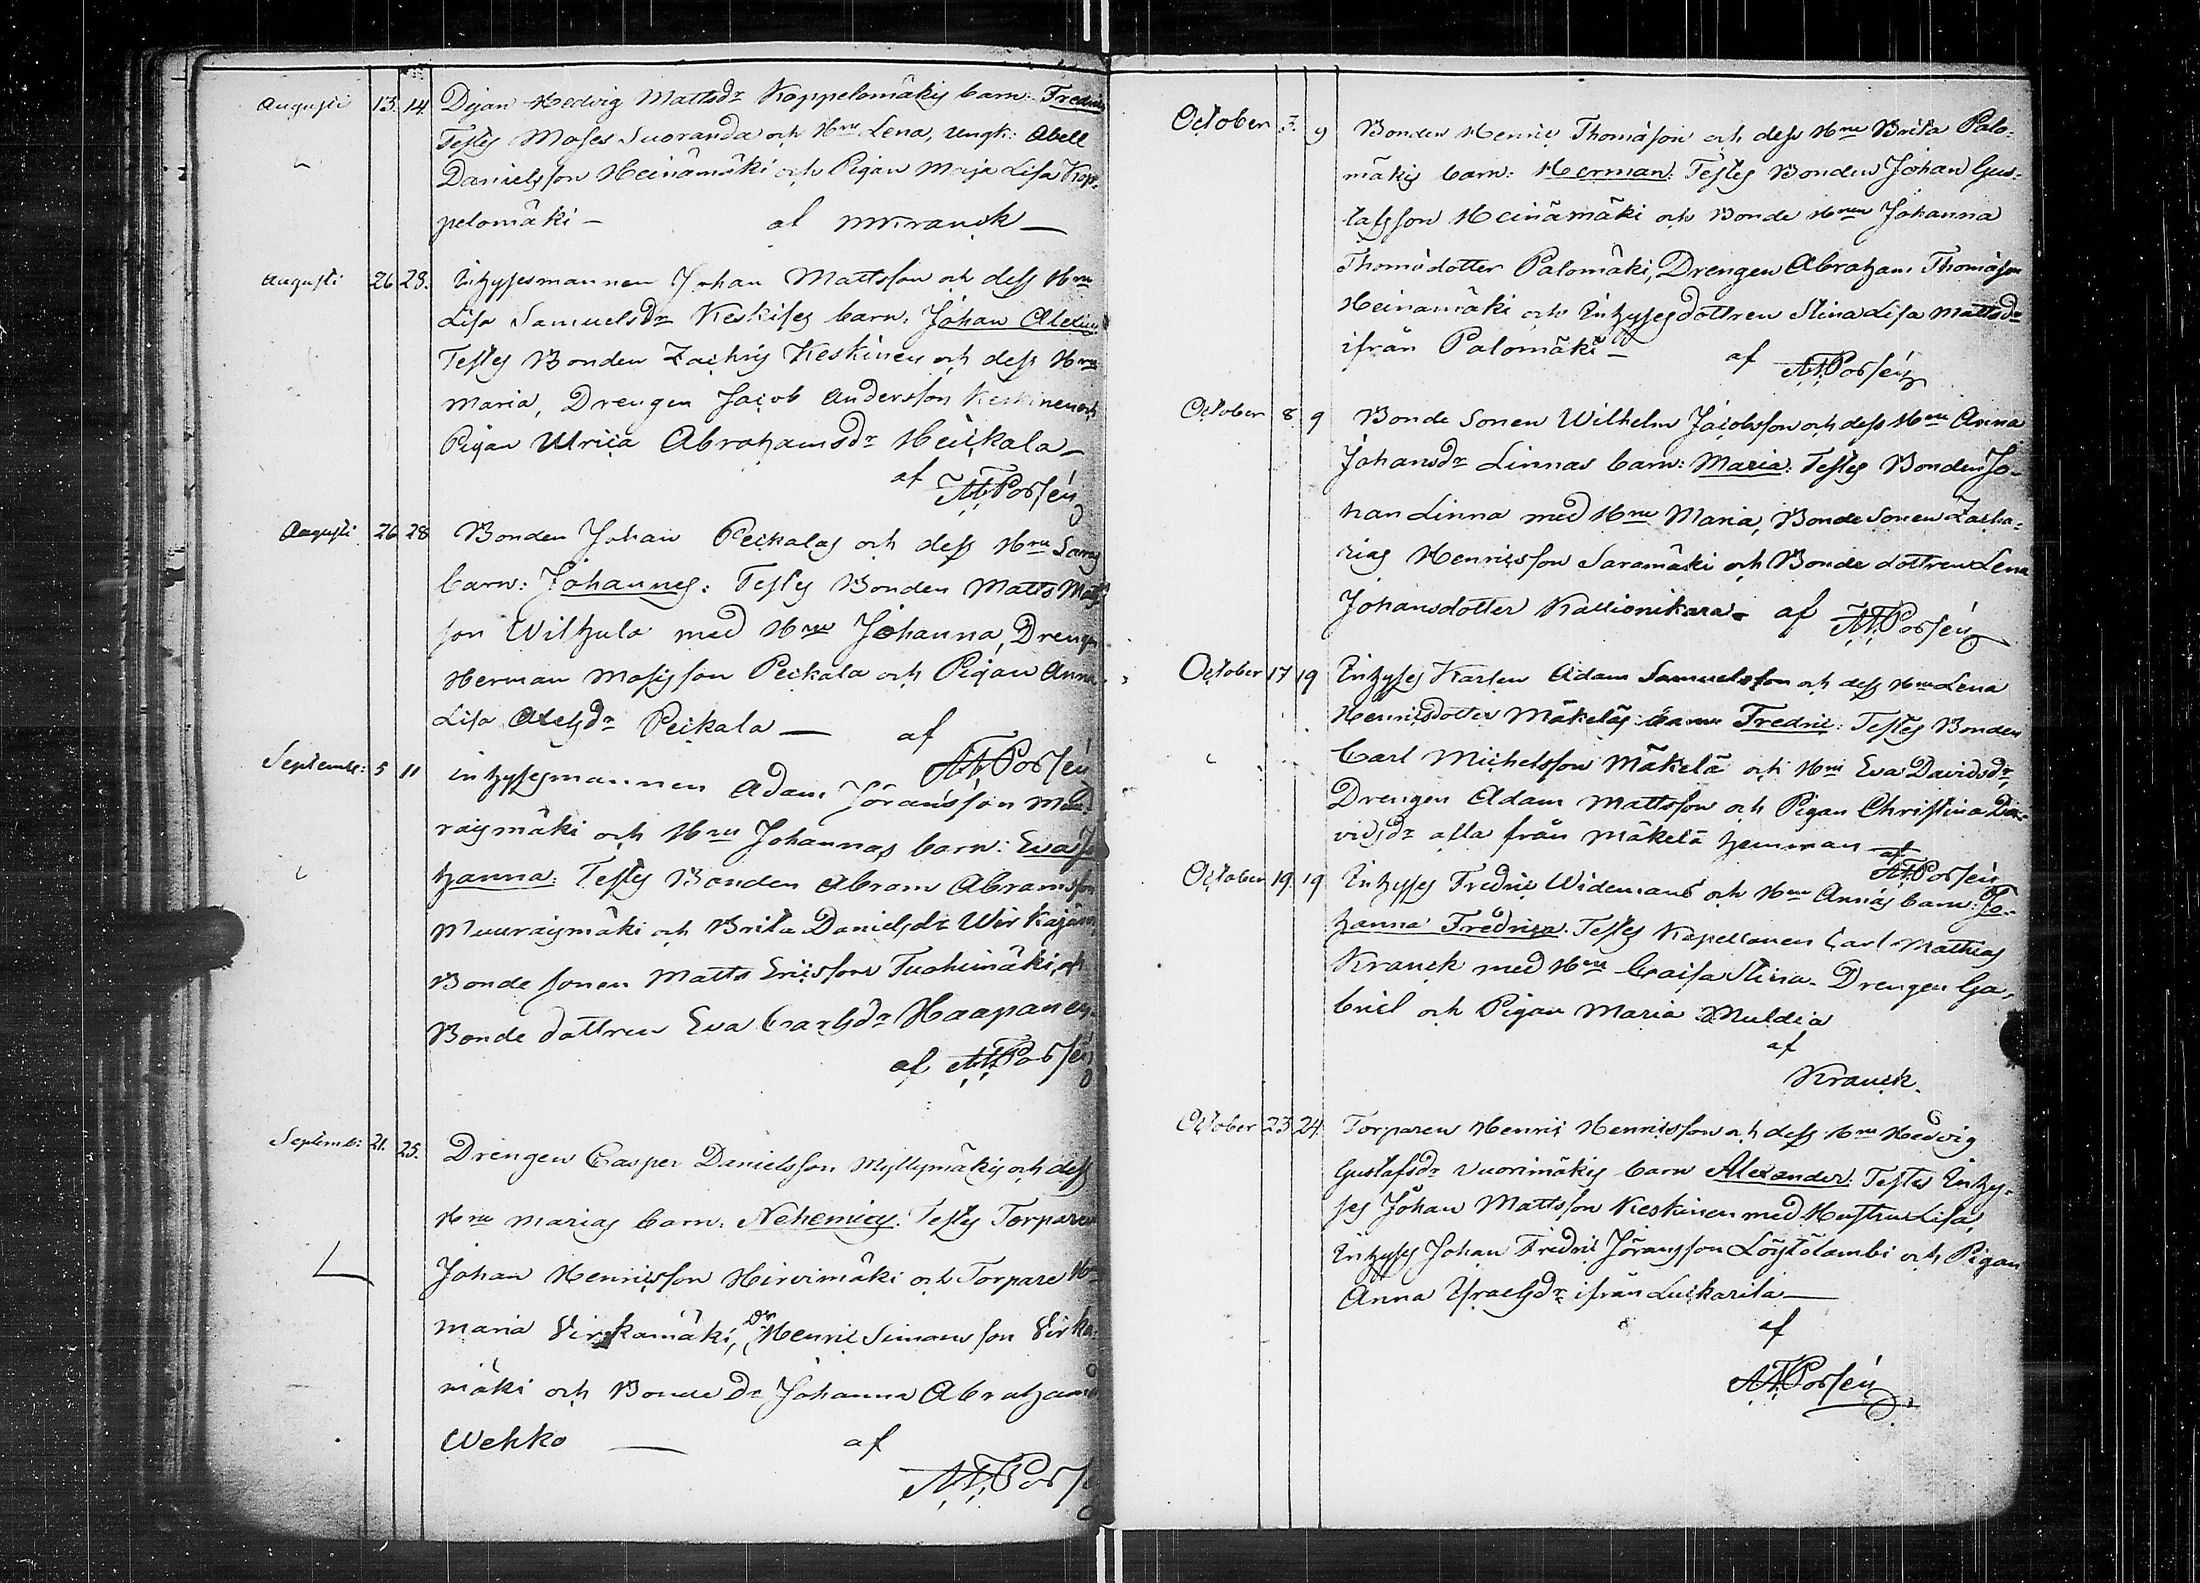 Augusti 13. 14. Pigan Hedwig Mattsdr Koppelomäkis barn: Fredric
Testes Moses Suoranda och Hru Lena, ungk: Abell
Danielsson Heinämäki och Pigan Maja Lisa Kop-
pelomäki — af Kranck —
Augusti 26 28. Inhysesmannen Johan Mattsson och dess Hru
Lisa Samuelsdr Keskises barn: Johan
Testes Bonden Zachris Keskinen och dess Hru
Maria, Drengen Jacob Andersson Keskinen och
Pigan Ulrica Abrahamsdr Heickala —
af Porsén
Augusti 26 28 Bonden Johan Peikalas och dess Hru Saras
barn: Johannes: Testes Bonden Matts Matts
son Wilhula med Hru Johanna, Drengen
Herman Mosisson Peikala och Pigan Anna
Lisa Axelsdr Peikala — af
Porsén
Septemb: 5 11 inhysesmannen Adam Jöransson Muu-
raismäki och Hru Johannas barn: Eva Jo
hanna: Testes Bonden Abram Abramsson
Muuraismäki och Brita Danielsdr Kajänen,
Bonde sonen Matts Ericsson Tuohimäki, och
Bonde dottren Eva Carlsdr Haapanen.
af Porsén
Septemb: 21. 25. Drengen Casper Danielsson Myllymäkis och dess
Hru Marias barn: Nehemias: Testes Torparen
Johan Henricsson Hirvimäki och Torpare Hru
Maria Virkamäki, Dr Henric Simonsson Virka-
mäki och Bonde Dr Johanna Abrahamsd
Wehko — af
Porsé
October 3. 9 Bonden Henric Thomasson och dess Hru Brita Palo-
mäkis barn: Herman: Testes Bonden Johan Gus-
tafsson Heinämäki och Bonde Hrun Johanna
Thomadotter Palomäki, Drengen Abraham Thomasson
Heinamäki och Inhysesdottren Stina Lisa Mattsdr
ifrån Palomäki — af Porsén
October 8 9 Bonde Sonen Wilhelm Jacobsson och dess Hru Anna
Johansdr Linnas barn: Maria: Testes Bonden Jo-
han Linna med Hru Maria, Bonde Sonen Zacha-
rias Henricsson Saramäki och Bonde dottren Lena
Johansdotter Kallionikara - af Porsén
October 17 19 Inhyses Karlen Adam Samuelsson och dess Hru Lena
Henricsdotter Mäkeläs barn Fredric: Testes Bonden
Carl Michelsson Mäkelä och Hru Eva Davidsdr,
Drengen Adam Mattsson och Pigan Christina Da-
vidsdr alla från Mäkelä hemman — af
Porsén
October 19. 19 Inhyses Fredric Widemans och Hru Annas barn: Jo-
hanna Fredrica: Testes Kapellanen Carl Mathias
Kranck med Hru Caisa Stina. Drengen Ga-
briel och Pigan Maria Muldia
af
Kranck.
October 23 24. Torparen Henric Henricsson och dess Hru Hedvig
Gustafsdr Vuorimäkis barn Alexander: Testes Inhy-
ses Johan Mattsson Keskinen med Hustru Lisa,
Inhyses Johan Fredric Jöransson Löytölambi och Pigan
Anna Israelsdr ifrån Luikarila —
af
Porsén